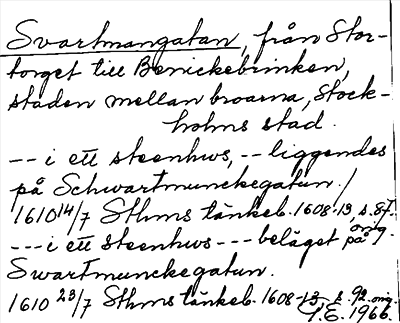 Svartmangatan, från Stor-
torget till Benickebrinken,
staden mellan broarna, Stock-
holms stad.
-- i ett steenhws, -- liggendes
på Schwartmunckegatun./
1610 14/7 Sthms tänkeb. 1608-13, s. 87.
orig.
--- i ett steenhws --- beläget på
Swartmunckegatun.
1610 23/7 Sthms tänkeb. 1608-13 s. 92. orig.
S.E. 1966.